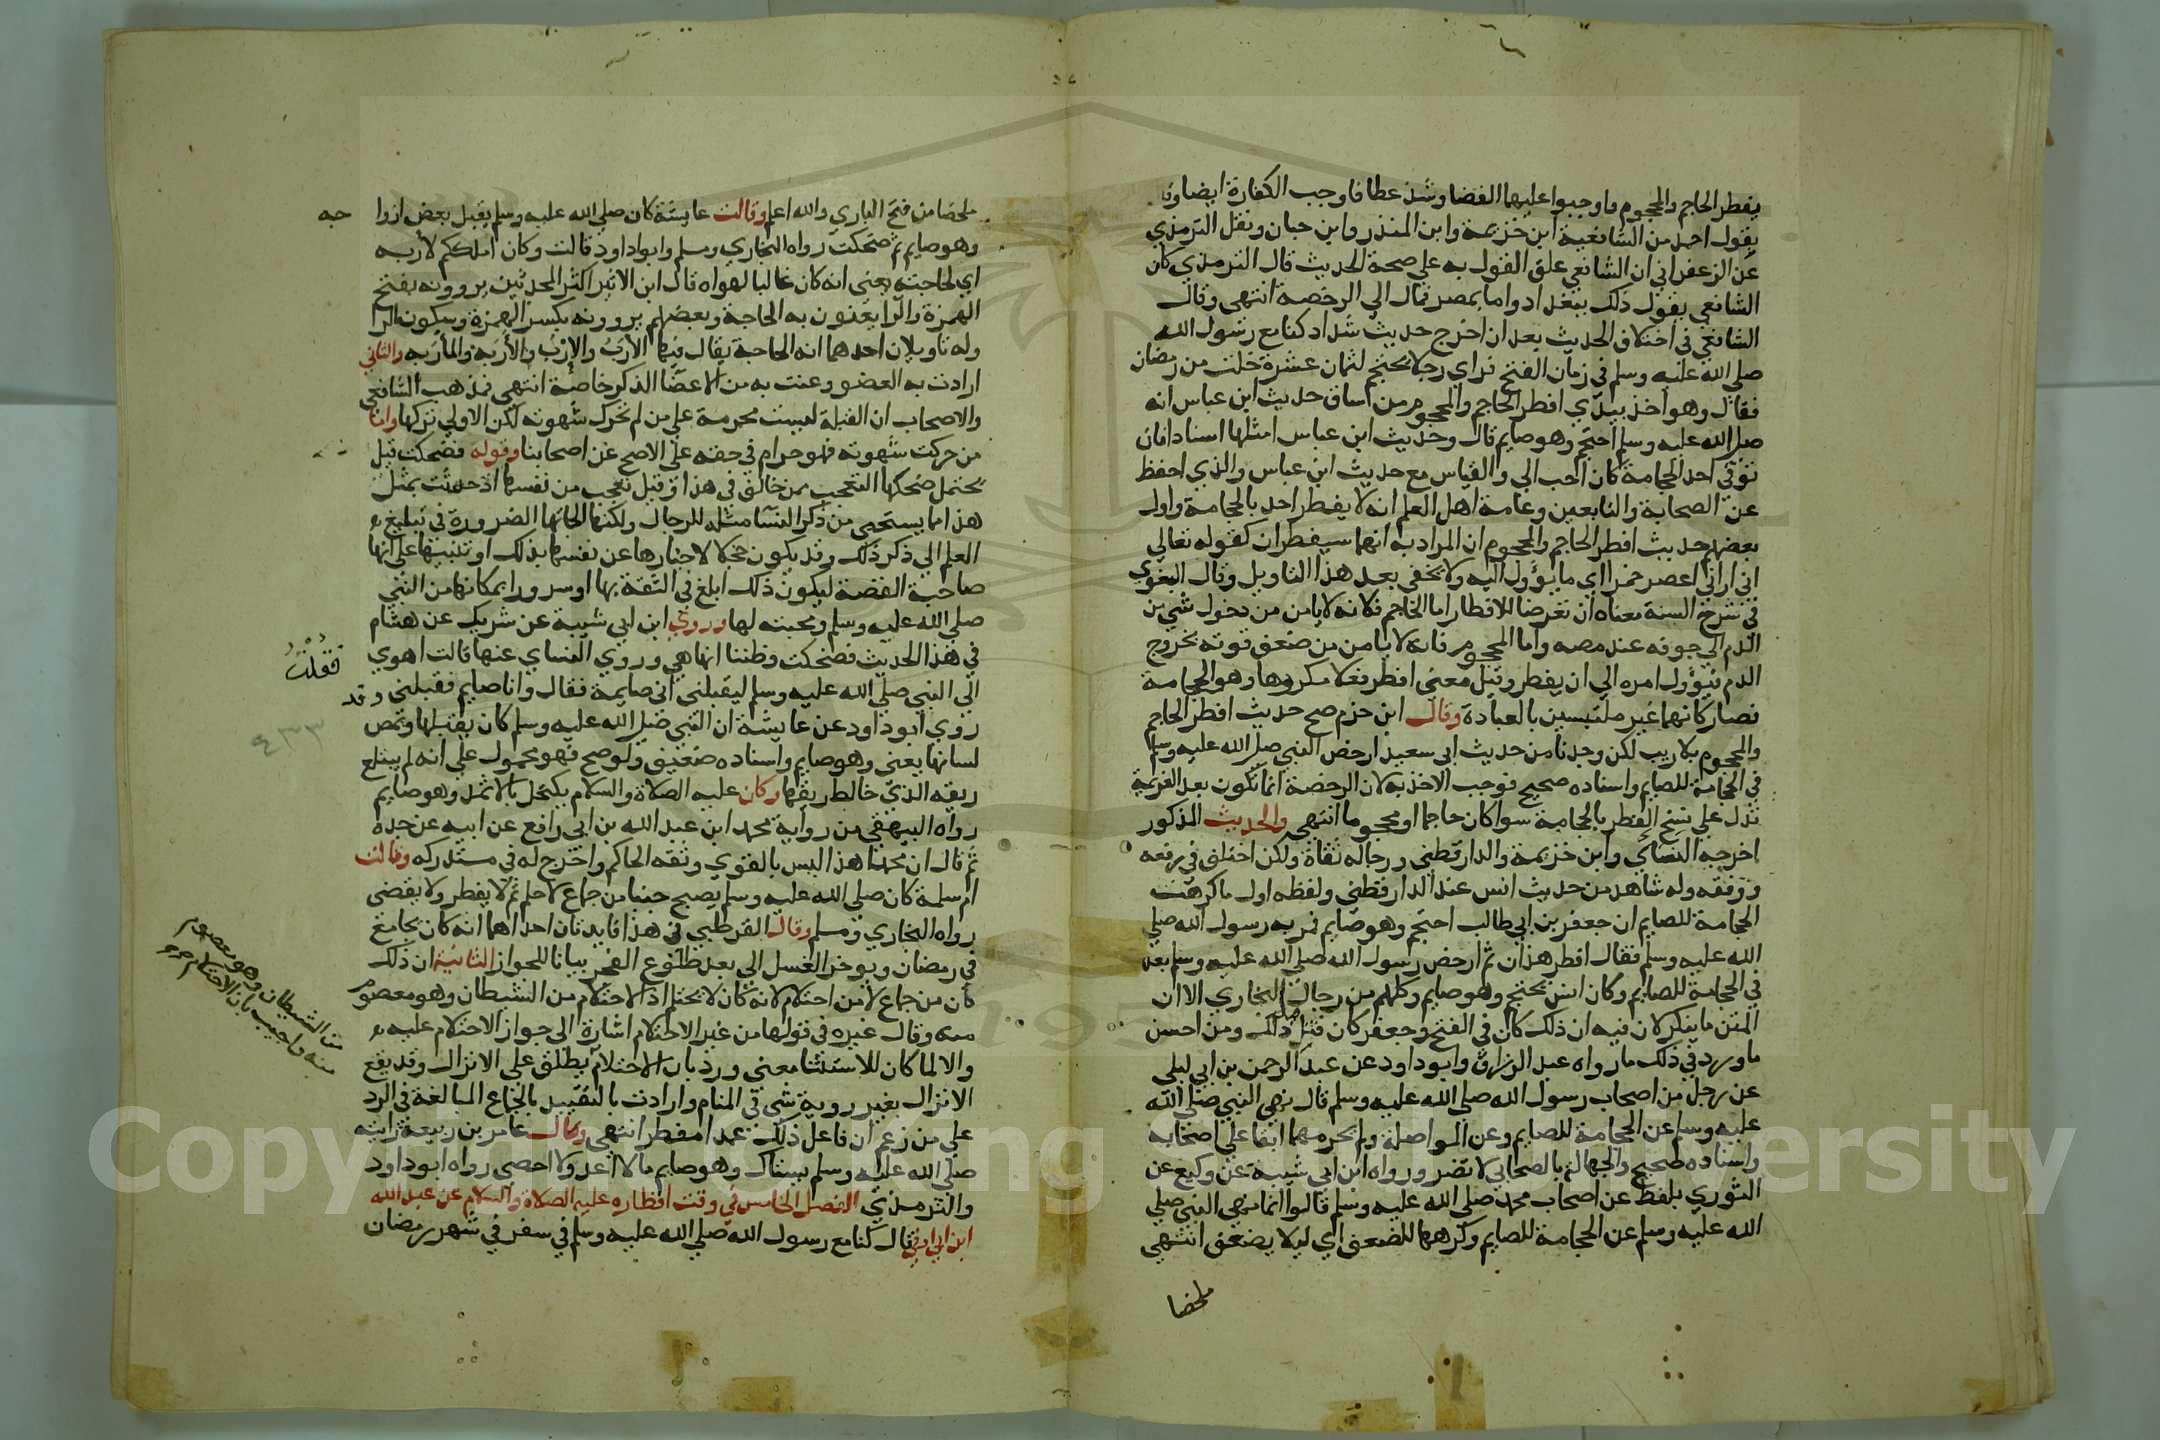 يفطر الحاجم والمحجوم واوجبوا عليهما القضا وشذ عطا فاوجب الكفارة ايضا وقا
يقول احمد من الشافعية ابن خزيمة وابن المنذر وابن حبان ونقل الترمذي
عن الزعفراني ان الشافعي علق القول به علي صحة الحديث قال الترمذي كان
الشافعي يقول ذلك ببغداد واما بمصر فمال الي الرخصة انتهى وقال
الشافعي في اختلاف الحديث بعد ان اخرج حديث شداد كنا مع رسول الله
صلي الله عليه وسلم في زمان الفتح فراي رجلا يحتجم لثمان عشرة خلت من رمضان
فقال وهو اخذ بيدي افطر الحاجم والمحجوم من اساق حديث ابن عباس انه
صلي الله عليه وسلم احتجم وهو صايم قال وحديث ابن عباس امثلها اسنادا فان
توقي احد الحجامة كان احب الي والقياس مع حديث ابن عباس والذي احفظ
عن الصحابة والتابعين وعامة اهل العلم انه لا يفطر احد بالحجامة واول
بعضهم حديث افطر الحاجم والمحجوم ان المراد به انهما سيفطران كقوله تعالي
اني اراني اعصر خمرا اي ما يؤول اليه ولا يخفى بعد هذا التاويل وقال البغوي
في شرح السنة معناه ان تعرضا للافطار اما الحاجم فلانه لا يامن من دخول شي من
الدم الي جوفه عند مصه واما المحجوم فانه لا يامن من ضعف قوته بخروج
الدم فيؤول امره الي ان يفطر وقيل معنى افطر فعلا مكروها وهو الحجامة
فصار كانهما غير ملتبسين بالعبادة وقال ابن حزم صح حديث افطر الحاجم
والمحجوم بلا ريب لكن وجدنا من حديث ابي سعيد ارخص النبي صلي الله عليه وسلم
في الحجامة للصايم واسناده صحيح فوجب الاخذ به لان الرخصة انما تكون بعد العزيمة
تدل علي نسخ الفطر بالحجامة سوا كان حاجما او محجوما انتهى والحديث المذكور
اخرجه النساي وابن خزيمة والدارقطني ورجاله ثقاة ولكن اختلف في رفعه
ووقفه وله شاهد من حديث انس عند الدارقطني ولفظه اول ما كرهت
الحجامة للصايم ان جعفر بن ابي طالب احتجم وهو صايم فمر به رسول الله صلي
الله عليه وسلم فقال افطر هذان ثم ارخص رسول الله صلي الله عليه وسلم بعد
في الحجامة للصايم وكان انس يحتجم وهو صايم وكلهم من رجال البخاري الا ان
المتن ما ينكر لان فيه ان ذلك كان في الفتح وجعفر كان قتل قبل ذلك ومن احسن
ما ورد في ذلك ما رواه عبد الرزاق وابو داود عن عبد الرحمن بن ابي ليلي
عن رجل من اصحاب رسول الله صلي الله عليه وسلم قال نهي النبي صلي الله
عليه وسلم عن الحجامة للصايم وعن المواصلة ولم يحرمهما ابقا علي اصحابه
واسناده صحيح والجهالة بالصحابي لا تضر ورواه ابن ابي شيبة عن وكيع عن
الثوري بلفظ عن اصحاب محمد صلي الله عليه وسلم قالوا انما نهي النبي صلي
الله عليه وسلم عن الحجامة للصايم وكرهها للضعف اي ليلا يضعف انتهي
ملخصا
ملخصا من فتح الباري والله اعلم وقالت عايشة كان صلي الله عليه وسلم يقبل بعض ازوا جه
وهو صايم ثم ضحكت رواه البخاري ومسلم وابو داود قالت وكان املككم لأربه
اي لحاجته يعني انه كان غالبا لهواه قال ابن الاثير اكثر المحدثين يروونه بفتح
الهمزة والرا يعنون به الحاجة وبعضهم يروونه بكسر الهمزة وسكون الرا
وله تاويلان احدهما انه الحاجة يقال فيها الأرَبُ والإرْبُ والأربَه والمأرَبه والثاني
ارادت به العضو وعنت به من الاعضا الذكر خاصة انتهى فمذهب الشافعي
والاصحاب ان القبلة ليست محرمة علي من لم تحرك شهوته لكن الاولي تركها واما
من حركت شهوته فهو حرام في حقه علي الاصح عن اصحابنا وقوله فضحكت قيل
يحتمل ضحكها التعجب ممن خالف في هذا وقيل تعجب من نفسها اذ حدثت بمثل
هذا مما يستحي من ذكر النسا مثله للرجال ولكنها الجاتها الضرورة في تبليغ
العلم الي ذكر ذلك وقد يكون خجلا لاخبارها عن نفسها بذلك او تنبيها علي انها
صاحبة القصة ليكون ذلك ابلغ في الثقة بها او سرورا بمكانها من النبي
صلي الله عليه وسلم ومحبته لها وروي ابن ابي شيبة عن شريك عن هشام
في هذا الحديث فضحكت وظننا انها هي وروي النساي عنها قالت اهوي
فَقُلْتُ
الي النبي صلي الله عليه وسلم ليقبلني اني صايمة فقال وانا صايم فقبلني وقد
روي ابو داود عن عايشة ان النبي صلي الله عليه وسلم كان يقبلها ويمص
٤٣٣
لسانها يعني وهو صايم واسناده ضعيف ولو صح فهو محمول علي انه لم يبتلع
ريقه الذي خالط ريقها وكان عليه الصلاة والسلام يكتحل بالاثمد وهو صايم
رواه البيهقي من رواية محمد ابن عبد الله بن ابي رافع عن ابيه عن جده
ثم قال ان محمدا هذا ليس بالقوي وثقه الحاكم واخرج له في مستدركه وقالت
ام سلمة كان صلي الله عليه وسلم يصبح جنبا من جماع لا حلم ثم لا يفطر ولا يقضي
رواه البخاري ومسلم وقال القرطبي في هذا فايدتان احداهما انه كان يجامع
في رمضان ويوخر الغسل الي بعد طلوع الفجر بيانا للجواز الثانية ان ذلك
كان من جماع لا من احتلام لانه كان لا يحتلم اذ الاحتلام من الشيطان وهو معصوم
منه وقال غيره في قولها من غير الاحتلام اشارة الي جواز الاحتلام عليه
من الشيطان وهو معصوم
منه واجيب بان الاحتلام
والا لما كان للاستثنا معني ورد بان الاحتلام يطلق علي الانزال وقد يقع
الانزال بغير روية شي في المنام وارادت بالتقييد بالجماع المبالغة في الرد
علي من زعم ان فاعل ذلك عمدا مفطر انتهى وقال عامر بن ربيعة رايته
صلي الله عليه وسلم يستاك وهو صايم ما لا اعد ولا احصي رواه ابو داود
والترمذي الفصل الخامس في وقت افطاره عليه الصلاة والسلام عن عبد الله
ابن ابي اوفي قال كنا مع رسول الله صلي الله عليه وسلم في سفر في شهر رمضان